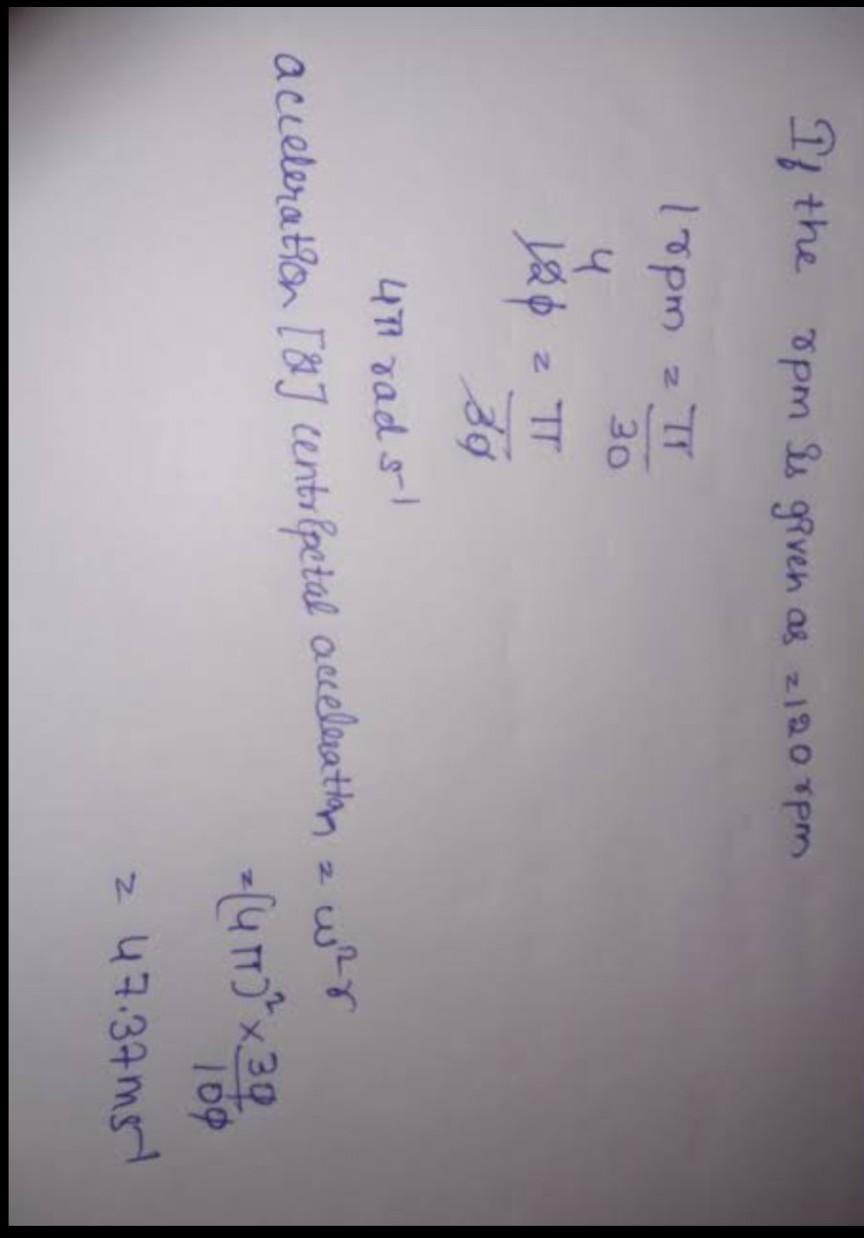 If the rpm is given as = 120 rpm
1 rpm = π/30
4
120 = π/30
4π rad s⁻¹
acceleration [or] centripetal acceleration = ω²r
= (4π)² × 30/100
= 47.37 ms⁻¹